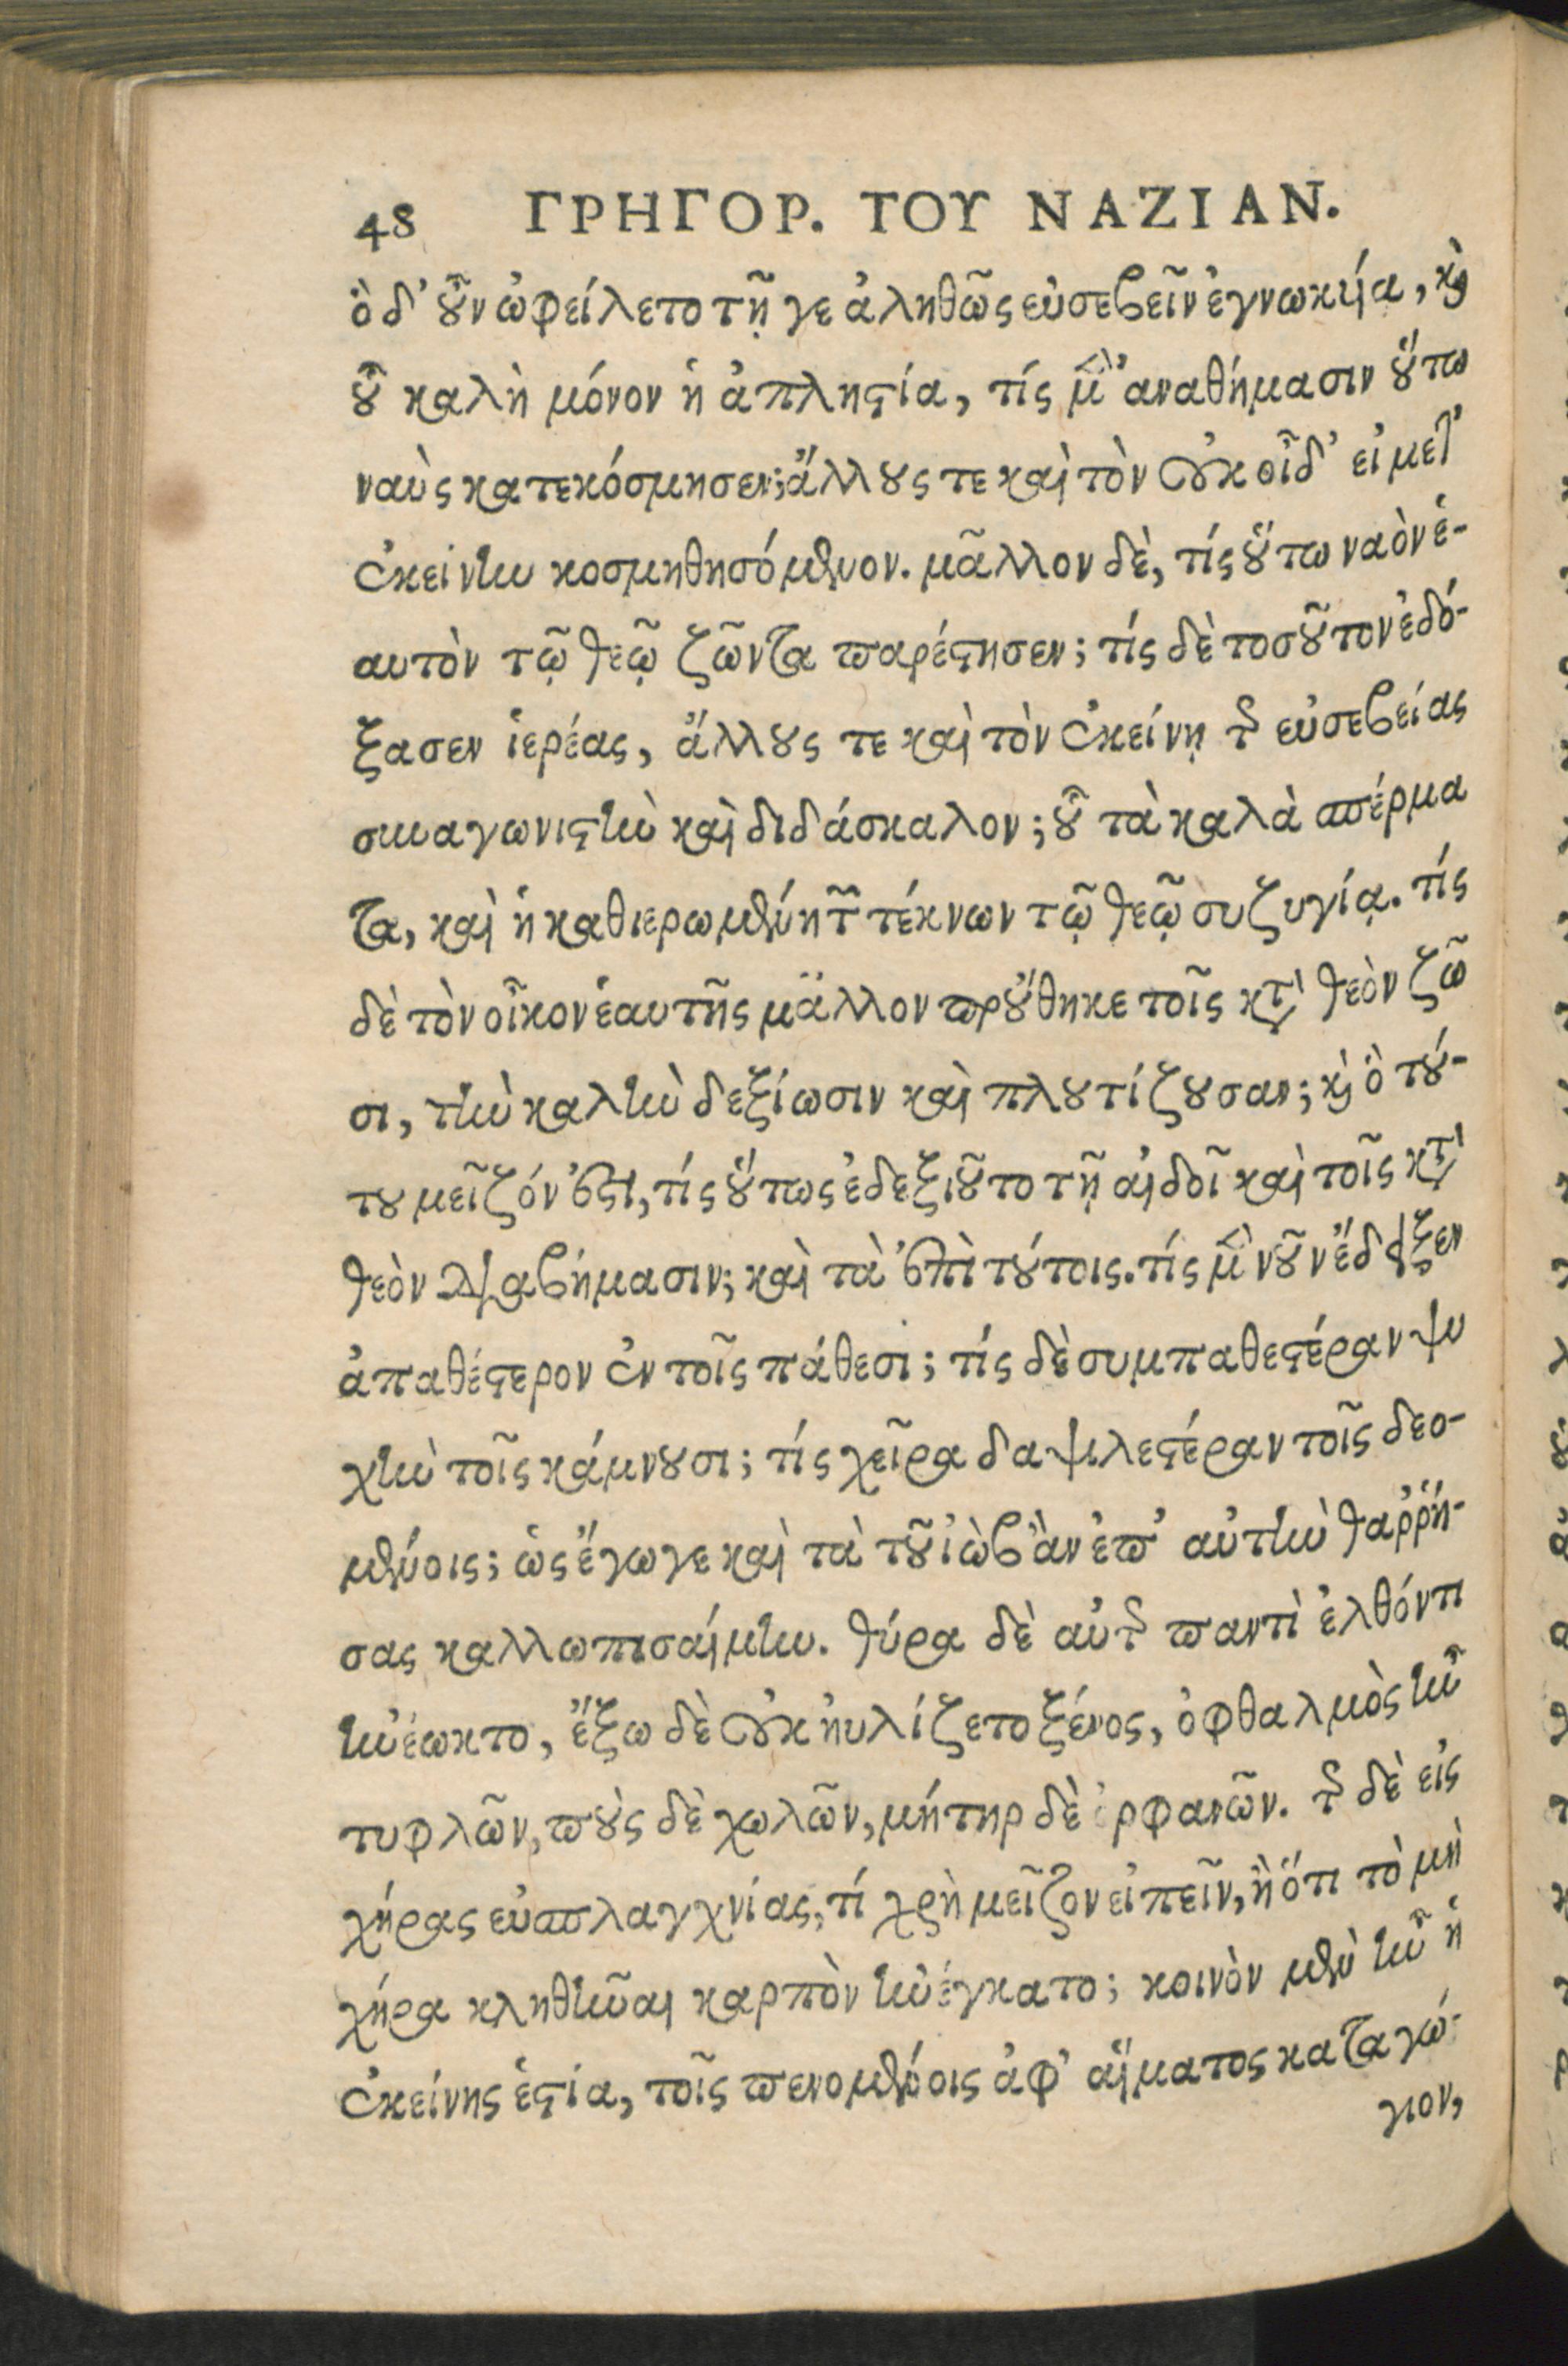 48 ΓΡΗΓΟΡ. ΤΟΥ ΝΑΖΙΑΝ.
ὃ δ' οὖν ὠφείλετο τῇ γε ἀληθῶς εὐσεβεῖν ἐγνωκυίᾳ, καὶ
οὗ καλὴ μόνον ἡ ἀπληστία, τίς μὲν ἀναθήμασιν οὕτω
ναοὺς κατεκόσμησεν; ἄλλους τε καὶ τὸν οὐκ οἶδ' εἰ μετ'
ἐκείνην κοσμηθησόμενον. μᾶλλον δὲ, τίς οὕτω ναὸν ἑ-
αυτὸν τῷ θεῷ ζῶντα παρέστησεν; τίς δὲ τοσοῦτον ἐδό-
ξασεν ἱερέας, ἄλλους τε καὶ τὸν ἐκείνῃ τῆς εὐσεβείας
συναγωνιστὴν καὶ διδάσκαλον; οὗ τὰ καλὰ σπέρμα
τα, καὶ ἡ καθιερωμένη τῶν τέκνων τῷ θεῷ συζυγίᾳ. τίς
δὲ τὸν οἶκον ἑαυτῆς μᾶλλον προύθηκε τοῖς κατὰ θεὸν ζῶ
σι, τὴν καλὴν δεξίωσιν καὶ πλουτίζουσαν; καὶ ὃ τού-
του μεῖζόν ἐστι, τίς οὕτως ἐδεξιοῦτο τῇ αἰδοῖ καὶ τοῖς κατὰ
θεὸν διαβήμασιν; καὶ τὰ ἐπὶ τούτοις. τίς μὲν νοῦν ἔδειξεν
ἀπαθέστερον ἐν τοῖς πάθεσι; τίς δὲ συμπαθεστέραν ψυ
χὴν τοῖς κάμνουσι; τίς χεῖρα δαψιλεστέραν τοῖς δεο-
μένοις; ὡς ἔγωγε καὶ τὰ τοῦ ἰὼβ ἂν ἐπ' αὐτὴν θαῤῥή-
σας καλλωπισαίμην. θύρα δὲ αὐτῆς παντὶ ἐλθόντι
ἠνέωκτο, ἔξω δὲ οὐκ ηὐλίζετο ξένος, ὀφθαλμὸς ἦν
τυφλῶν, ποὺς δὲ χωλῶν, μήτηρ δὲ ὀρφανῶν. τῆς δὲ εἰς
χήρας εὐσπλαγχνίας, τί χρὴ μεῖζον εἰπεῖν, ἢ ὅτι τὸ μὴ
χήρα κληθῆναι καρπὸν ἠνέγκατο; κοινὸν μὲν ἦν ἡ
ἐκείνης ἑστία, τοῖς πενομένοις ἀφ' αἵματος καταγώ-
γιον,